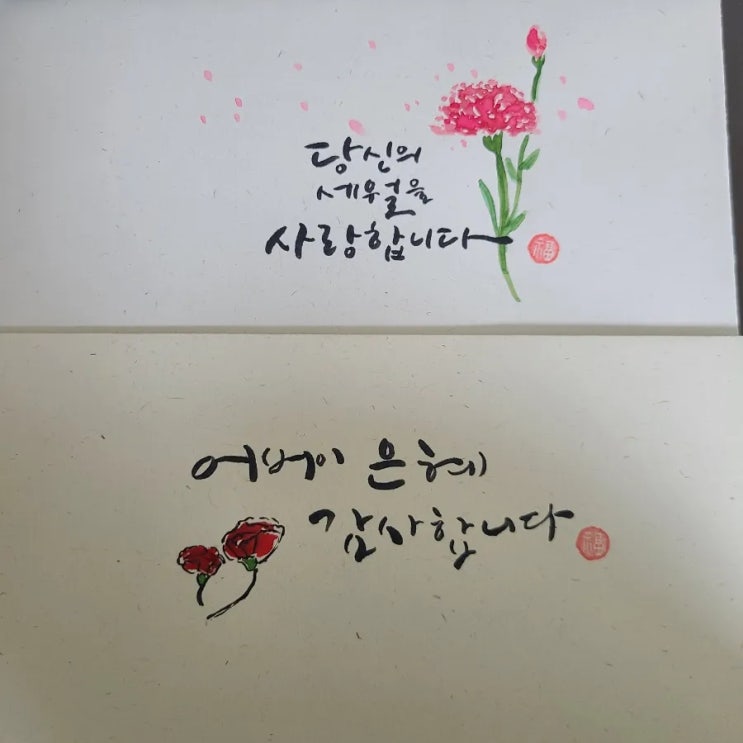 당신의
세월을
사랑합니다
福
어버이 은혜
감사합니다
福